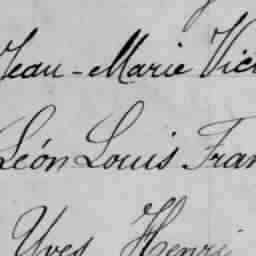 Jean-Marie Vic
Léon Louis Fran
Yves Henri